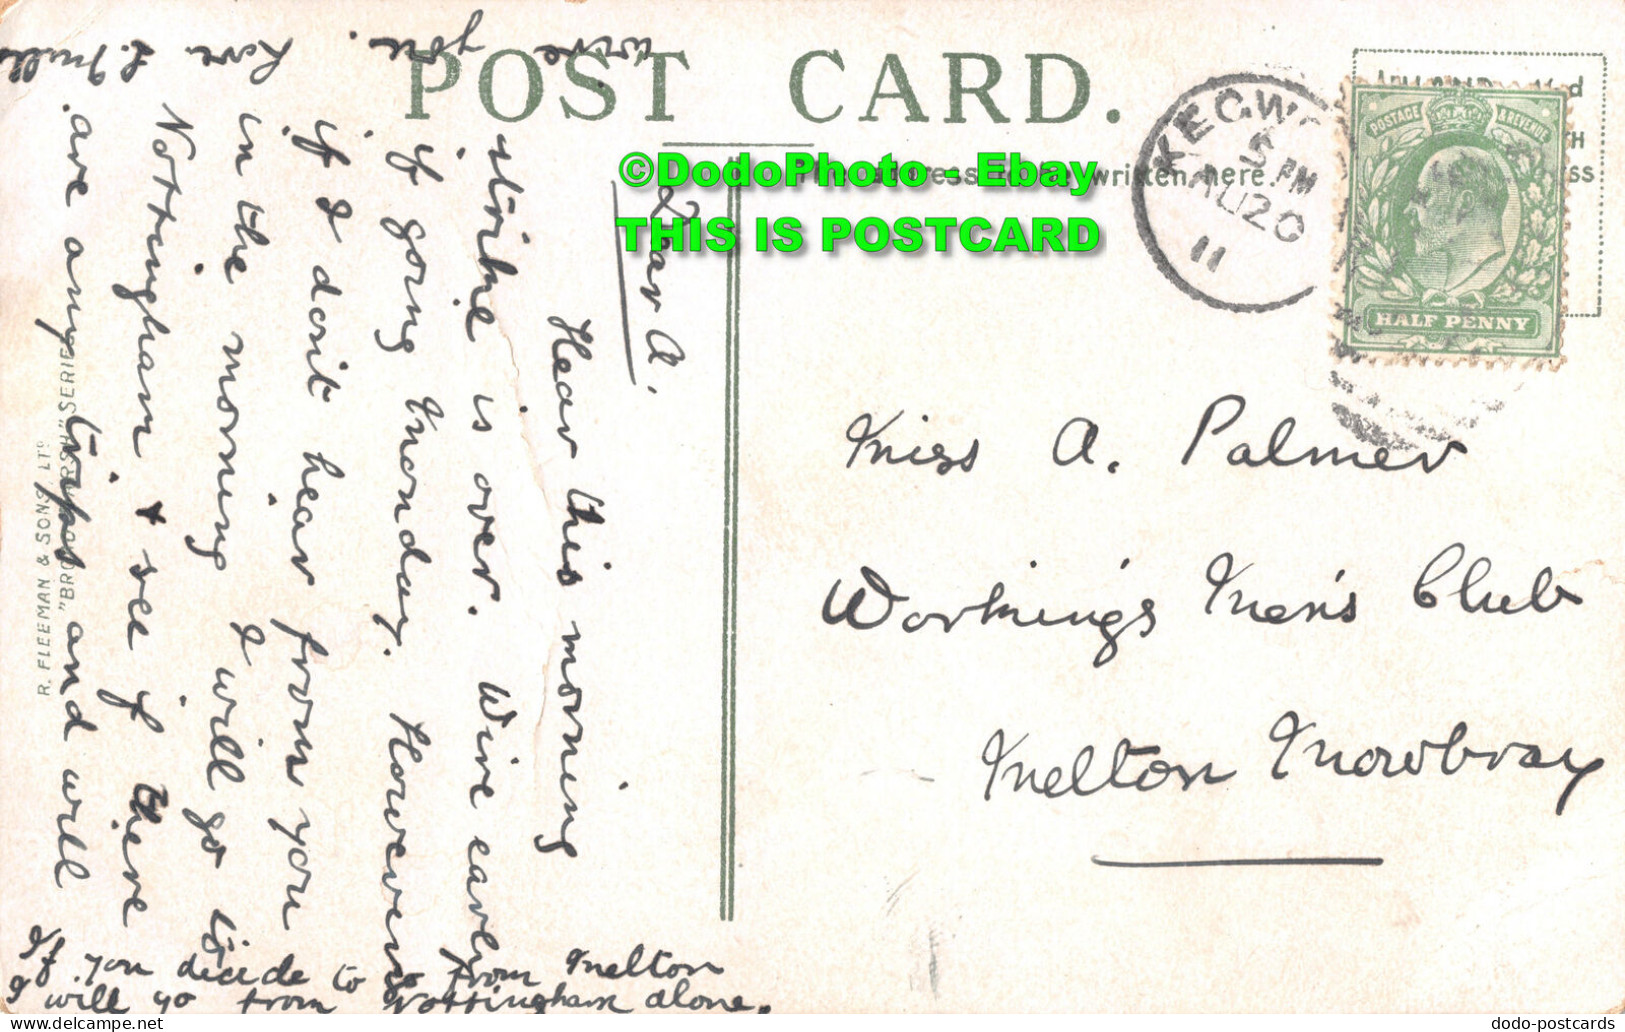 POST CARD.
The address to be written here.
©DodoPhoto - Ebay
THIS IS POSTCARD
KEGW
5 PM
AU 20
11
POSTAGE & REVENUE
HALF PENNY
Dear A.
Hear this morning
strike is over. Wire early
if going Monday. However
if I don't hear from you
in the morning I will go to
Nottingham & see if there
are any trips and will
wire you.
Love L. Mills
If you decide to go from Melton
I will go from Nottingham alone.
Miss A. Palmer
Working's Men's Club
Melton Mowbray
R. FLEEMAN & SONS LTD
"BROADMARSH" SERIES
dodo-postcards